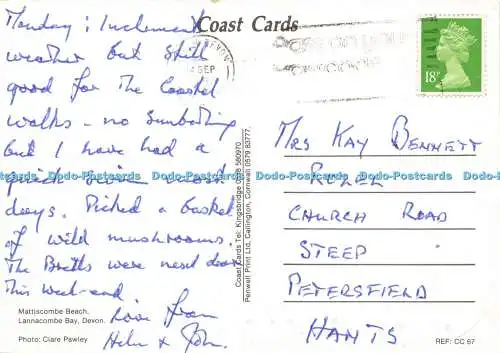 Coast Cards
Monday: Inclement
weather but still
good for the Coastal
walks - no sunbathing
but I have had a
quick swim most
days. Picked a basket
of wild mushrooms.
The Bretts were next door
this week-end.
Love from
Helen & John.
Mattiscombe Beach,
Lannacombe Bay, Devon.
Photo: Clare Pawley
Coast Cards Tel: Kingsbridge 0548 580970
Penwell Print Ltd, Callington, Cornwall. 0579 83777.
SEP
18P
MRS KAY BENNETT
CHURCH ROAD
STEEP
PETERSFIELD
HANTS
REF: CC 67
Dodo-Postcards Dodo-Postcards Dodo-Postcards Dodo-Postcards Dodo-Postcards Dodo-Postcards